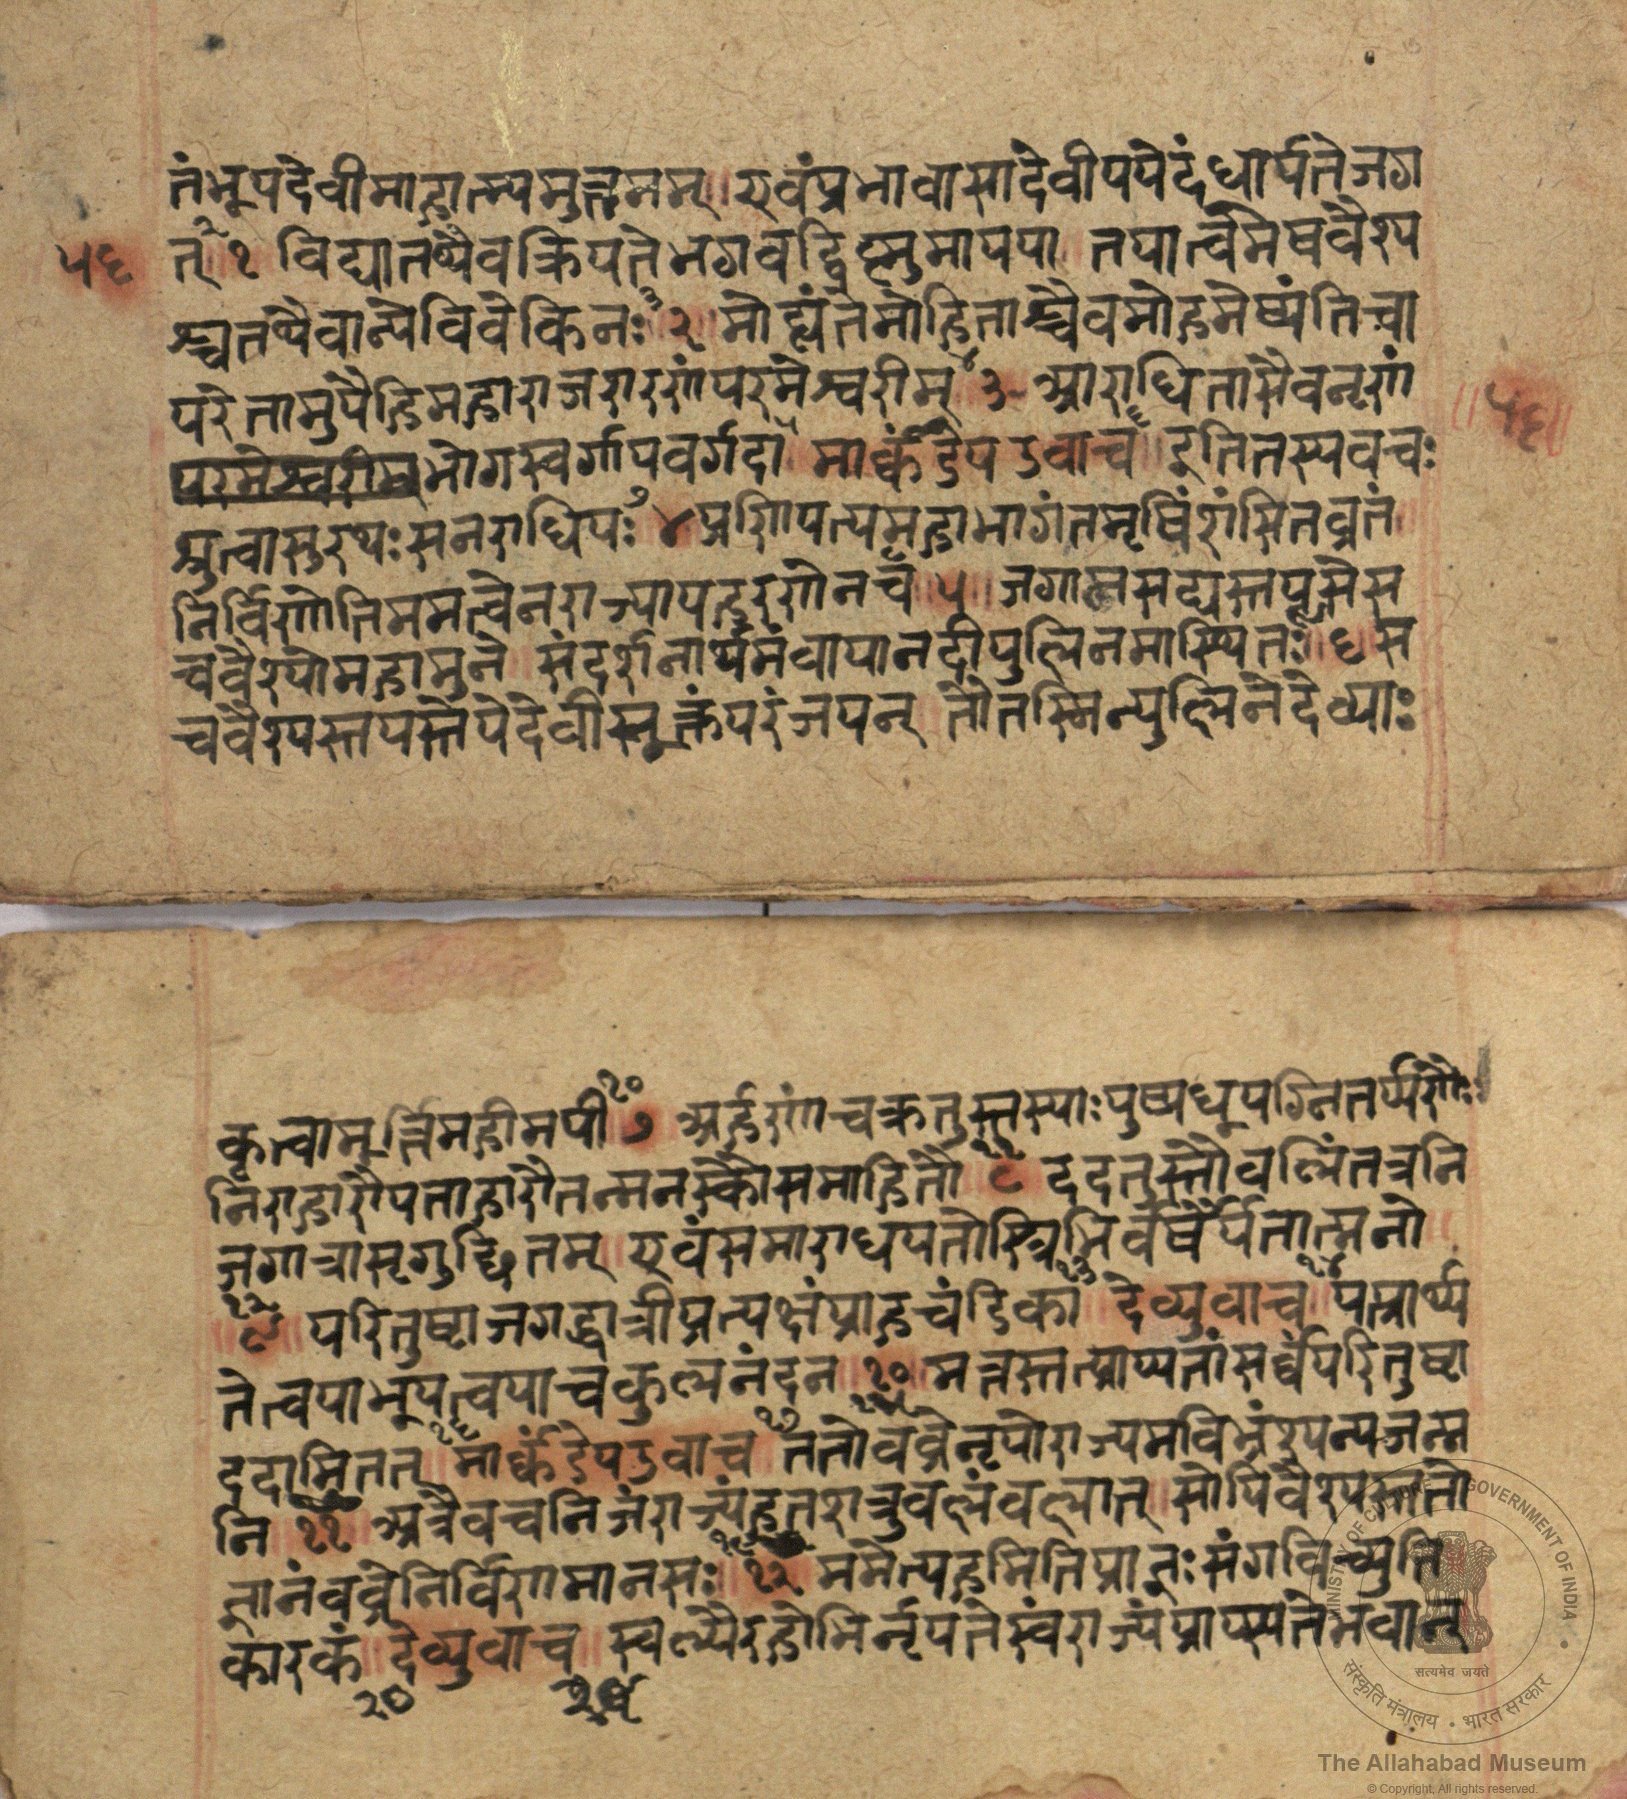 तंभूपदेवीमाहात्म्यमुत्तमम् ॥ एवंप्रभावासादेवीययेदंधार्यतेजग
५६
त् २ १ विद्यातथैवक्रियतेभगवद्विष्णुमायया तयात्वमेषवैश्य
श्चतथैवान्येविवेकिनः ३ ॥२॥ मोह्यंतेमोहिताश्चैवमोहमेष्यंतिचा
परेतामुपैहिमहाराजशरणंपरमेश्वरीम् ४ ३ आराधितासैवनृणां
५६
परमेश्वरीम् भोगस्वर्गापवर्गदा ५ ॥ मार्कंडेयउवाच ६ ॥ इतितस्यवचः
श्रुत्वासुरथःसनराधिपः ७ ॥४ प्रणिपत्यमहाभागंतमृषिंशंसितव्रतं
निर्विणोतिममत्वेनराज्यापहरणेनच ८ ॥५॥ जगामसद्यस्तपसेस
चवैश्योमहामुने ॥ संदर्शनार्थमंवायानदीपुलिनमास्थितः ९ ॥६ स
चवैश्यस्तपस्तेपेदेवीसूक्तंपरंजपन् तौतस्मिन्पुलिनेदेव्याः
कृत्वामूर्त्तिमहीमयीं १० ७ अर्हणांचक्रतुस्तस्याःपुष्पधूपाग्नितर्पणैः
निराहारौयताहारौतन्मनस्कौसमाहितौ ११ ॥८ ददतुस्तौवलिंतत्रनि
जगात्रासृगुक्षितम् ॥ एवंसमाराधयतोस्त्रिभिर्वर्षैर्यतात्मनो
१२ ॥९॥ परितुष्टाजगद्धात्रीप्रत्यक्षंप्राहचंडिका १३ ॥ देव्युवाच १४ ॥ यत्प्रार्थ्य
तेत्वयाभूपत्वयाचकुलनंदन ॥१०॥ मत्तस्तत्प्राप्यतांसर्वंपरितुष्टा
१५
ददामितत् १६ ॥ मार्कंडेयउवाच १७ ॥ ततोवव्रेनृपोराज्यमविभ्रंश्यन्यजन्म
नि ॥११॥ अत्रैवचनिजंराज्यंहतशत्रुवलंवलात् ॥ सोपिवैश्यस्ततो
ज्ञानंवव्रेनिर्विणमानसः ॥१२॥ ममेत्यहमितिप्राज्ञःसंगविच्युति
कारकं ॥ देव्युवाच ॥ स्वल्पैरहोभिर्नृपतेस्वंराज्यंप्राप्स्यतेभवान्
२०
MINISTRY OF CULTURE • GOVERNMENT OF INDIA
सत्यमेव जयते
संस्कृति मंत्रालय • भारत सरकार
The Allahabad Museum
© Copyright, All rights reserved.